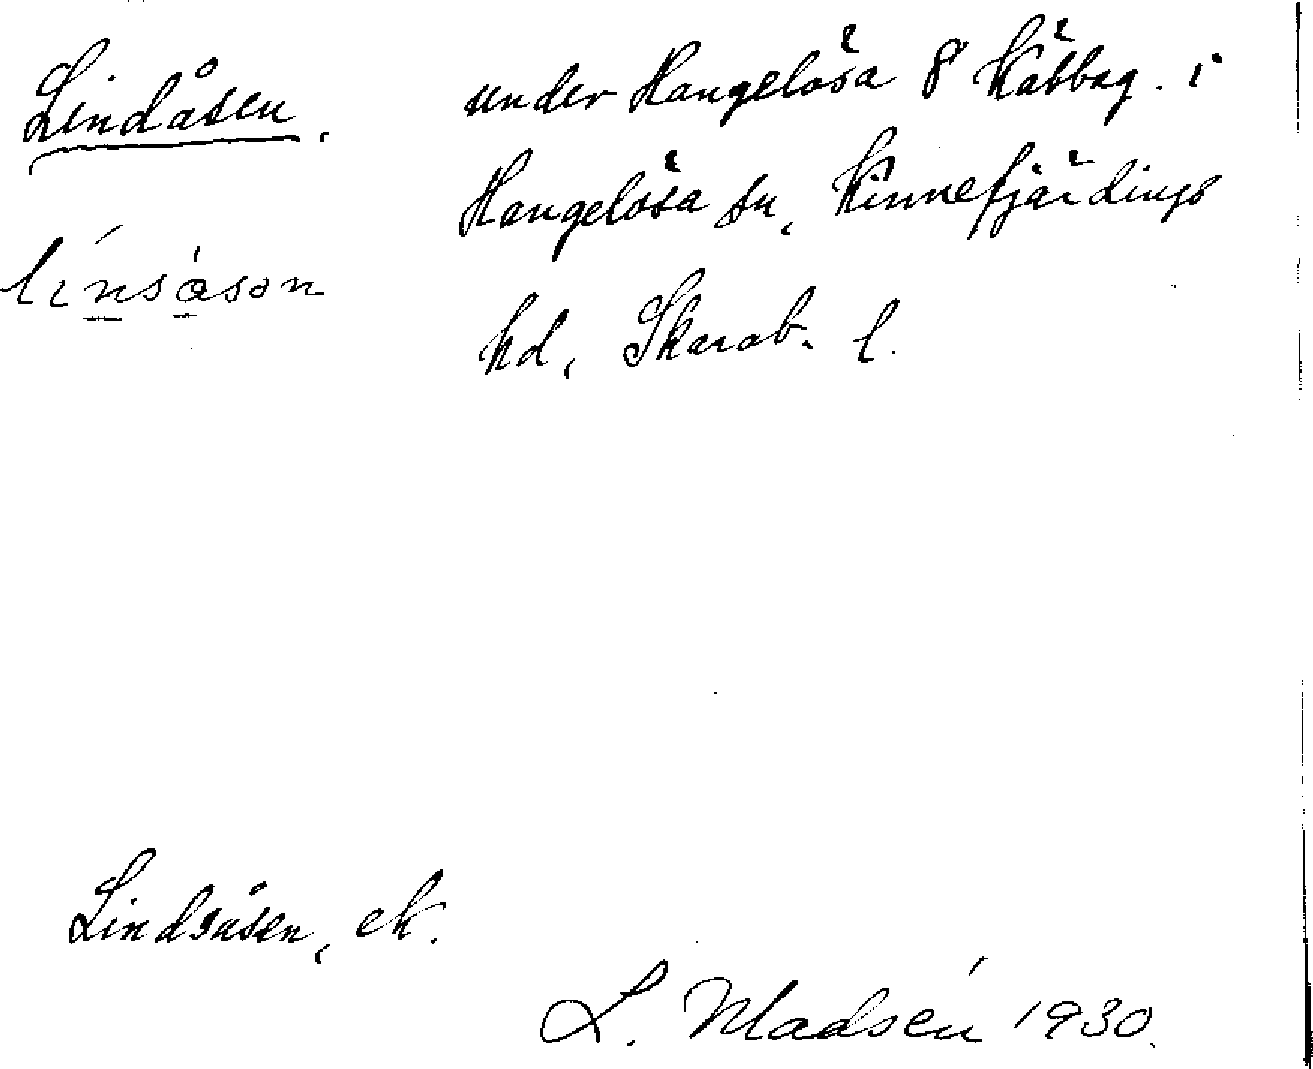 Lindåsen. under Hangelösa 8 Kätbag. i
Hangelösa sn, Kinnefjärdings
línsåson
hd, Skarab. l.
Lindsåsen, ek.
L. Madsén 1930.